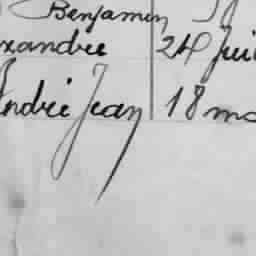 Benjamin
xandre 24 Jui
André Jean 18 ma